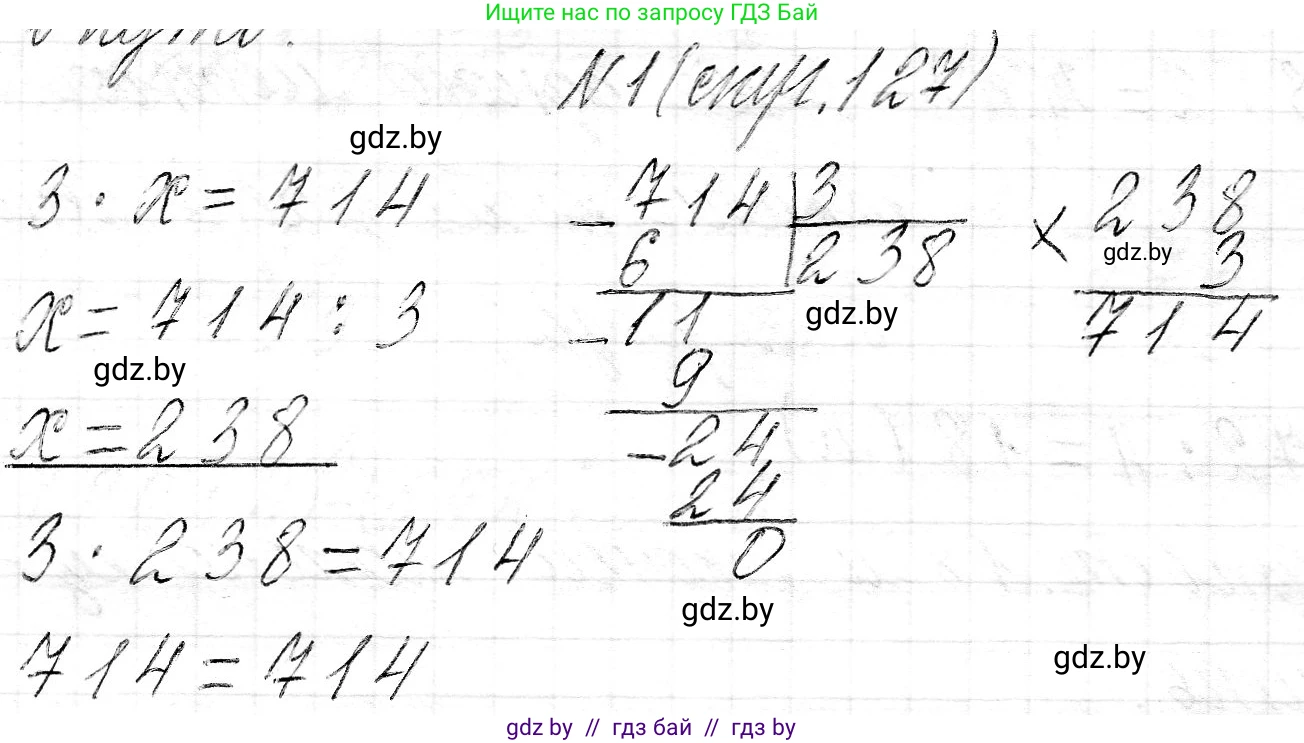 Ищите нас по запросу ГДЗ Бай
N1 (стр. 127)
gdz.by
3 · x = 714
x = 714 : 3
gdz.by
x = 238
3 · 238 = 714
714 = 714
- 714 | 3
6 | 238
gdz.by
- 11
9
- 24
24
0
gdz.by
× 238
gdz.by
3
714
gdz.by
gdz by // гдз бай // гдз by